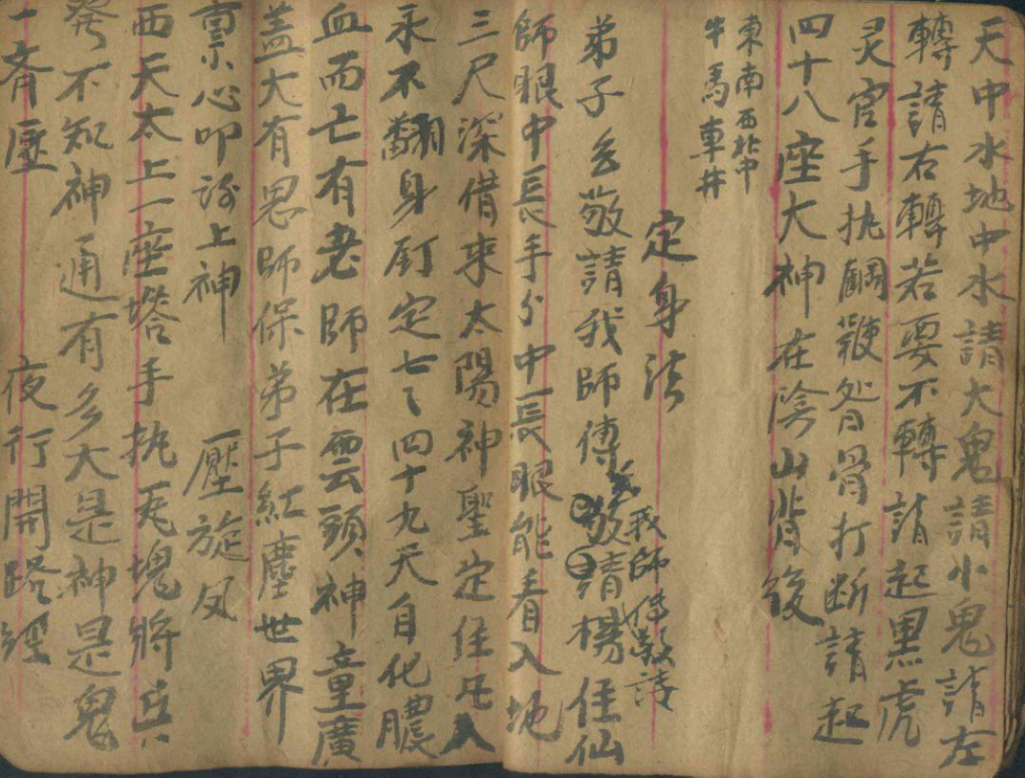 天中水地中水請大鬼請小鬼請左
轉請右轉若要不轉請起黑虎
灵官手执鋼鞭脊骨打断請起
四十八座大神在陰山背後
東南西北中
牛馬車井
定身法
弟子敬請我師傅敬請楊任仙
我師傅敬請
師眼中長手手中長眼能看入地
三尺深借来太陽神聖定住凡人
永不翻身釘定七七四十九天自化膿
血而亡有老師在雲頭神童廣
盖大有恩師保弟子紅塵世界
禀心叩謝上神
壓旋风
西天太上一座塔手执瓦塊將兵
発不知神通有多大是神是鬼
一齊壓
夜行開路經